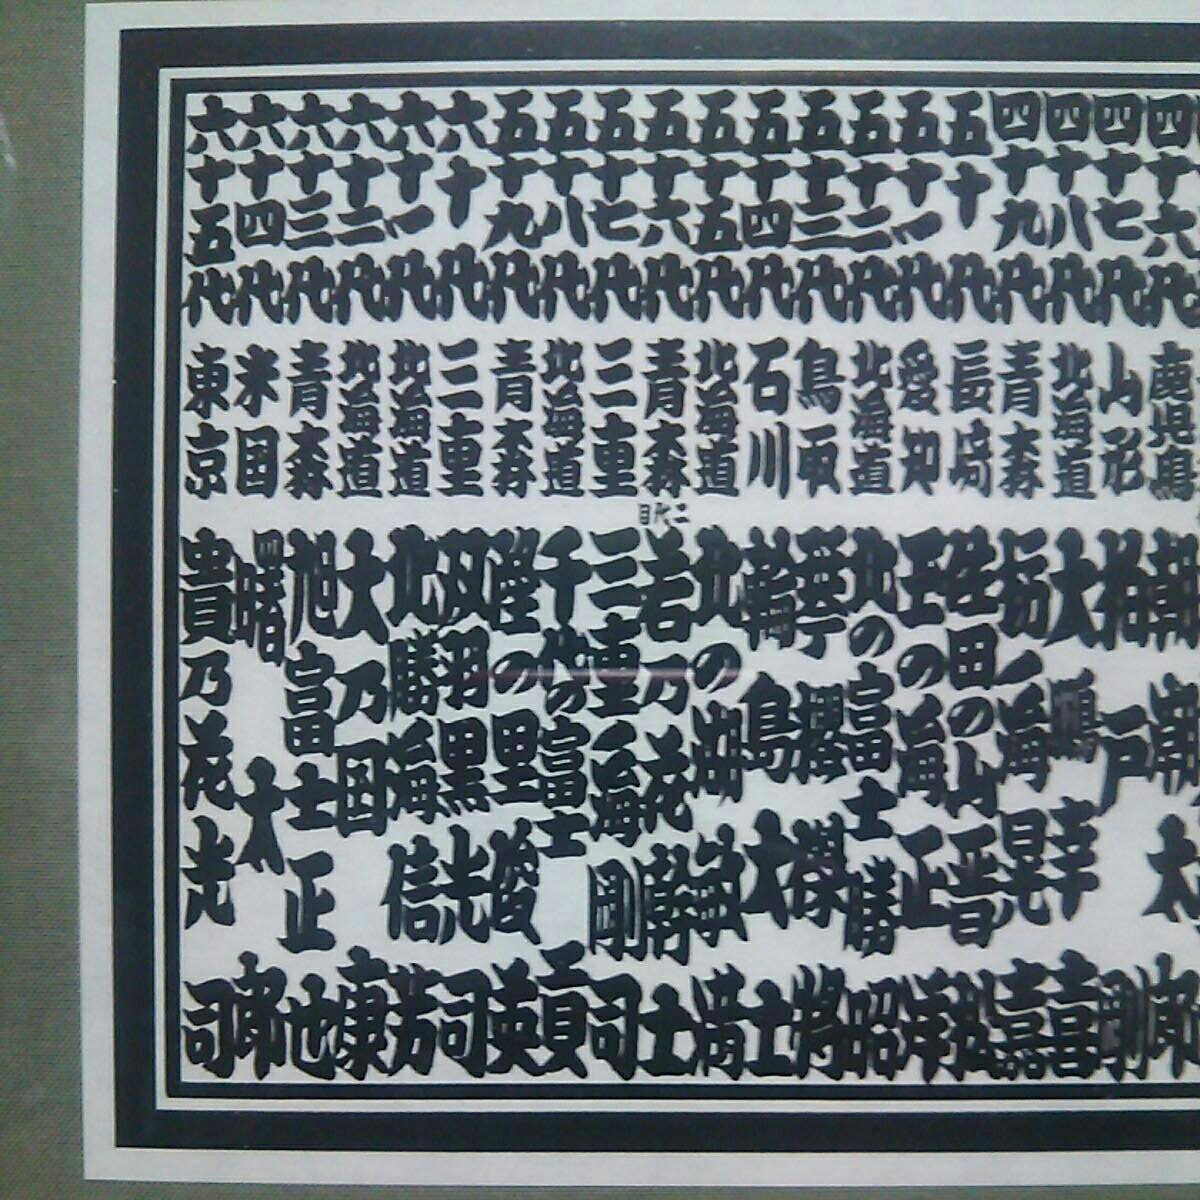 四十六代 鹿児島 朝潮太郎
四十七代 山形 柏戸剛
四十八代 北海道 大鵬幸喜
四十九代 青森 栃ノ海晃嘉
五十代 長崎 佐田の山晋松
五十一代 愛知 玉の海正洋
五十二代 北海道 北の富士勝昭
五十三代 鳥取 琴櫻傑将
五十四代 石川 輪島大士
五十五代 北海道 北の湖敏満
五十六代 青森 二代目 若乃花幹士
五十七代 三重 三重ノ海剛司
五十八代 北海道 千代の富士貢
五十九代 青森 隆の里俊英
六十代 三重 双羽黒光司
六十一代 北海道 北勝海信芳
六十二代 北海道 大乃国康
六十三代 青森 旭富士正也
六十四代 米国 曙太郎
六十五代 東京 貴乃花光司